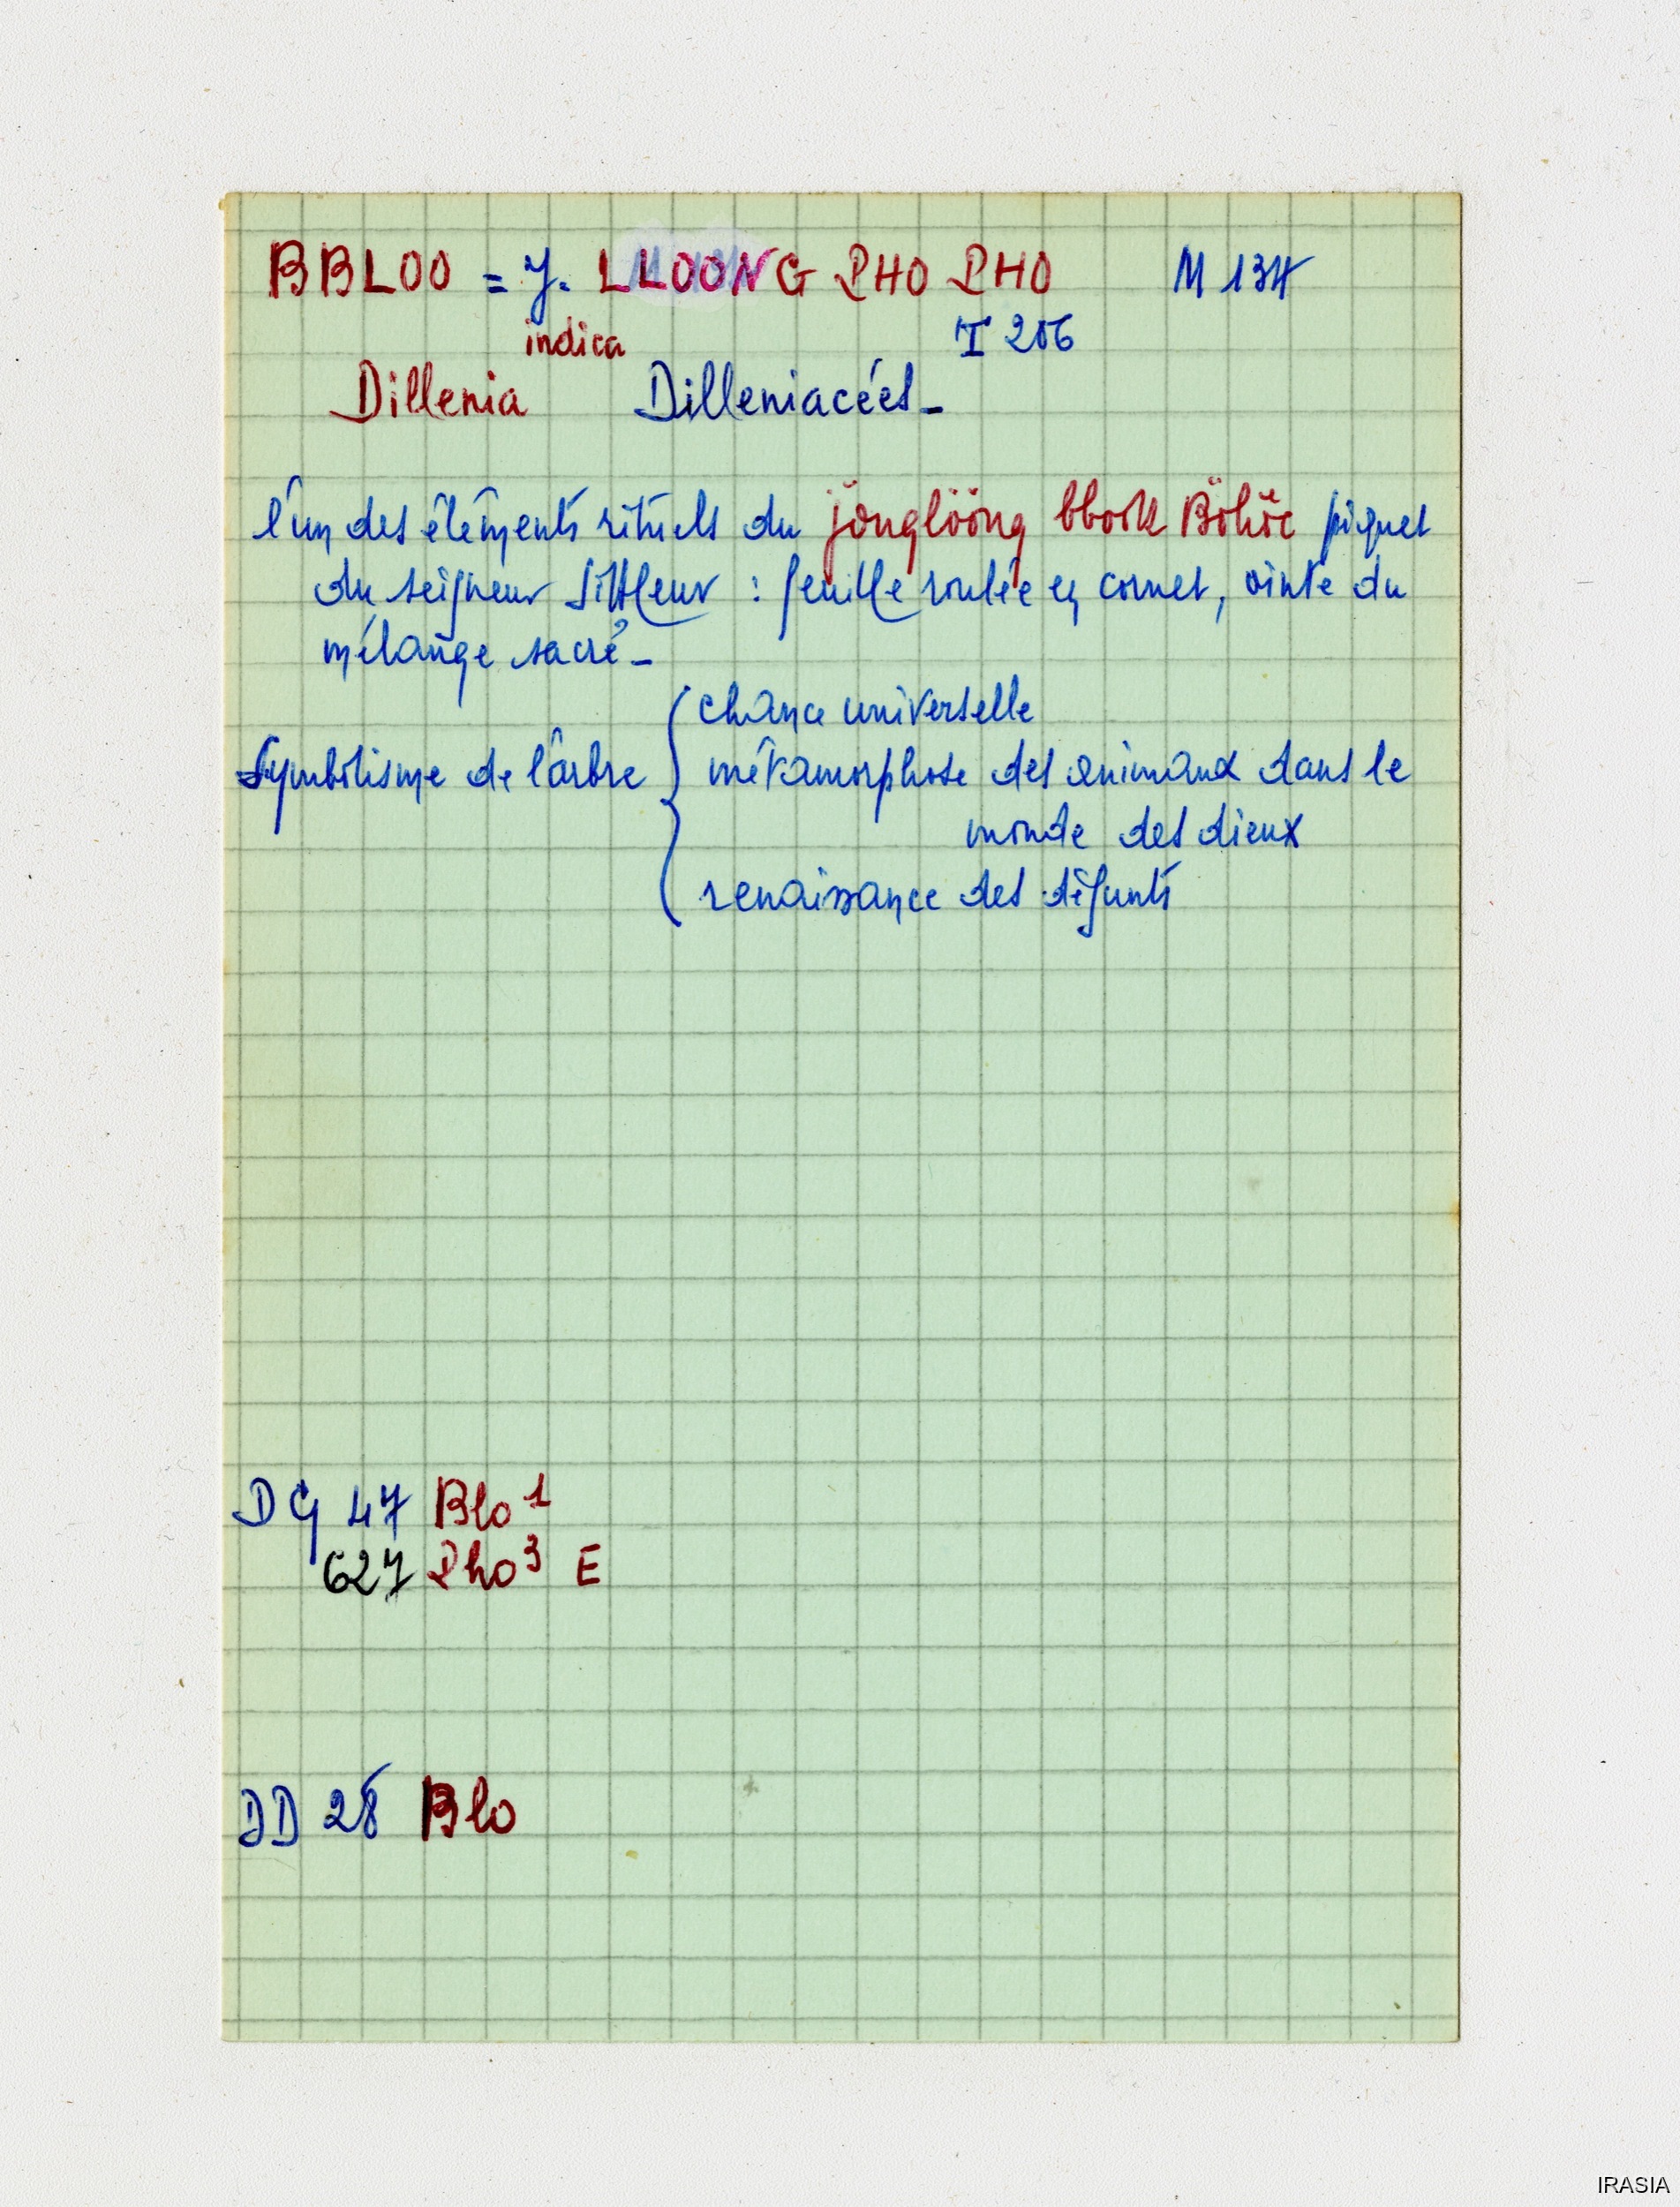 BBLOO = y. LLOONG PHO PHO M 134
indica T 206
Dillenia Dilleniacées_
l'un des éléments rituels du jönglööng bbook Böhöc piquet
du seigneur siffleur : feuille roulée en cornet, ointe du
mélange sacré_
chance universelle
Symbolisme de l'arbre métamorphose des animaux dans le
monde des dieux
renaissance des défunts
DG 47 Blo 1
627 Pho 3 E
DD 28 Blo
IRASIA